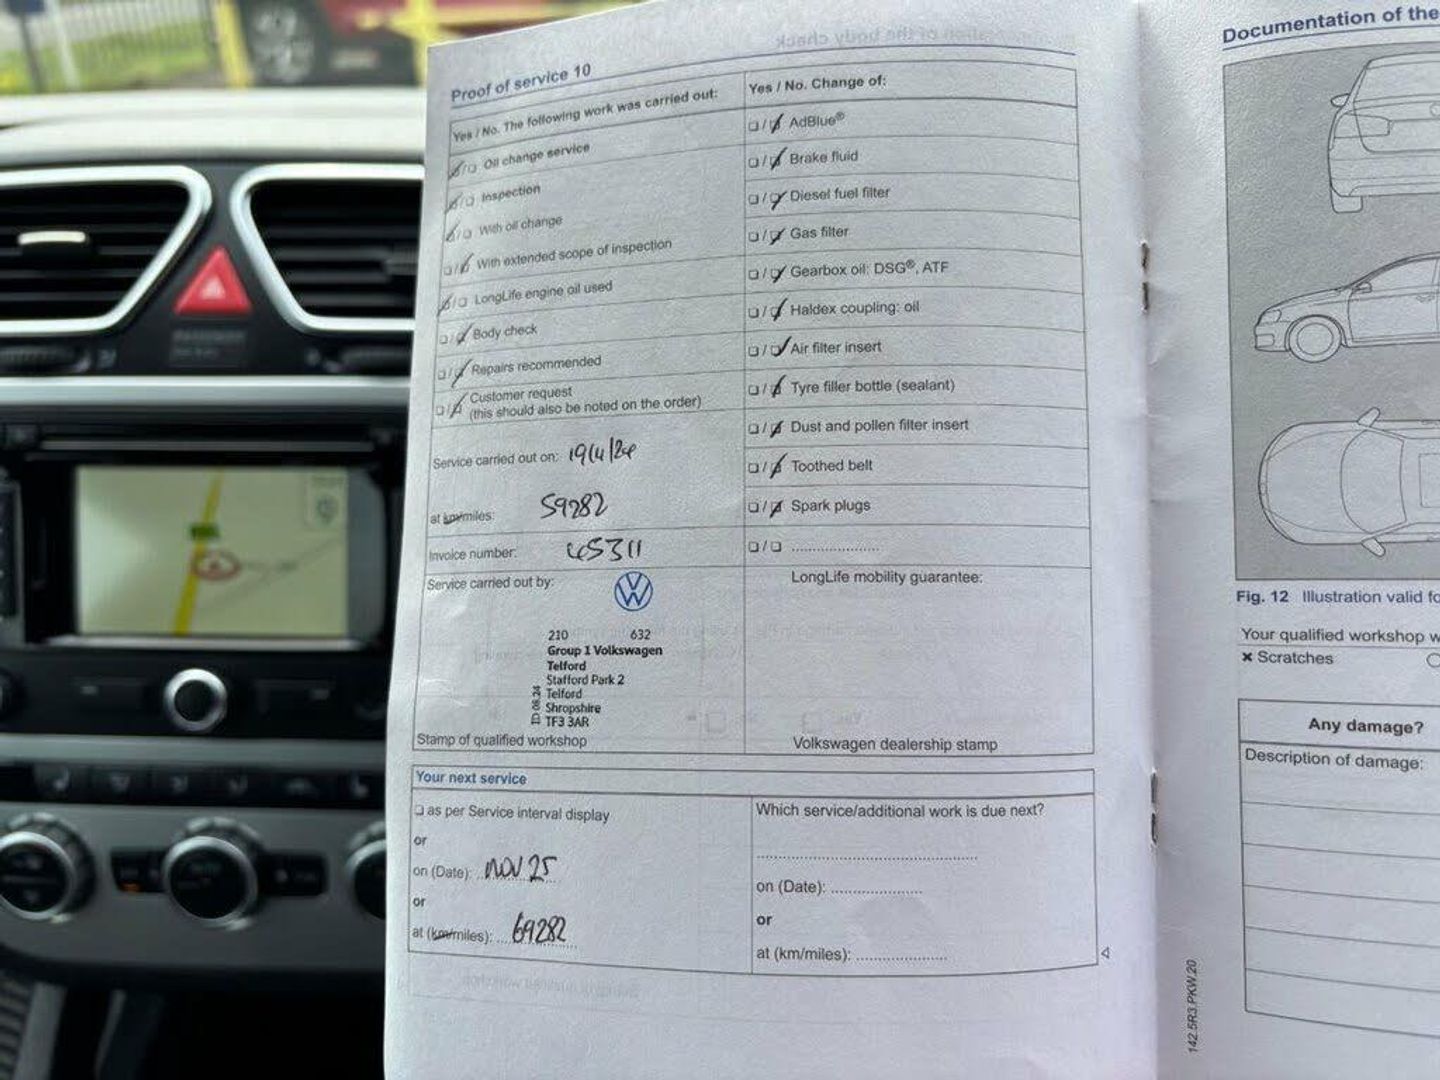 Proof of service 10
Yes / No. The following work was carried out:
☑/☐ Oil change service
☑/☐ Inspection
☑/☐ With oil change
☐/☑ With extended scope of inspection
☑/☐ LongLife engine oil used
☐/☑ Body check
☐/☑ Repairs recommended
☐/☑ Customer request
(this should also be noted on the order)
Service carried out on: 19/4/24
at km/miles: 59282
Invoice number: 45311
Service carried out by:
210 632
Group 1 Volkswagen
Telford
Stafford Park 2
Telford
Shropshire
TF3 3AR
Stamp of qualified workshop
Yes / No. Change of:
☐/☑ AdBlue®
☐/☑ Brake fluid
☐/☑ Diesel fuel filter
☐/☑ Gas filter
☐/☑ Gearbox oil: DSG®, ATF
☐/☑ Haldex coupling: oil
☐/☑ Air filter insert
☐/☑ Tyre filler bottle (sealant)
☐/☑ Dust and pollen filter insert
☐/☑ Toothed belt
☐/☑ Spark plugs
☐/☐ ......................
LongLife mobility guarantee:
Volkswagen dealership stamp
Your next service
☐ as per Service interval display
or
on (Date): NOV 25
or
at (km/miles): 69282
Which service/additional work is due next?
on (Date): ......................
or
at (km/miles): ......................
Documentation of the
Fig. 12 Illustration valid fo
Your qualified workshop w
× Scratches
Any damage?
Description of damage:
142.5R3.PKW.20